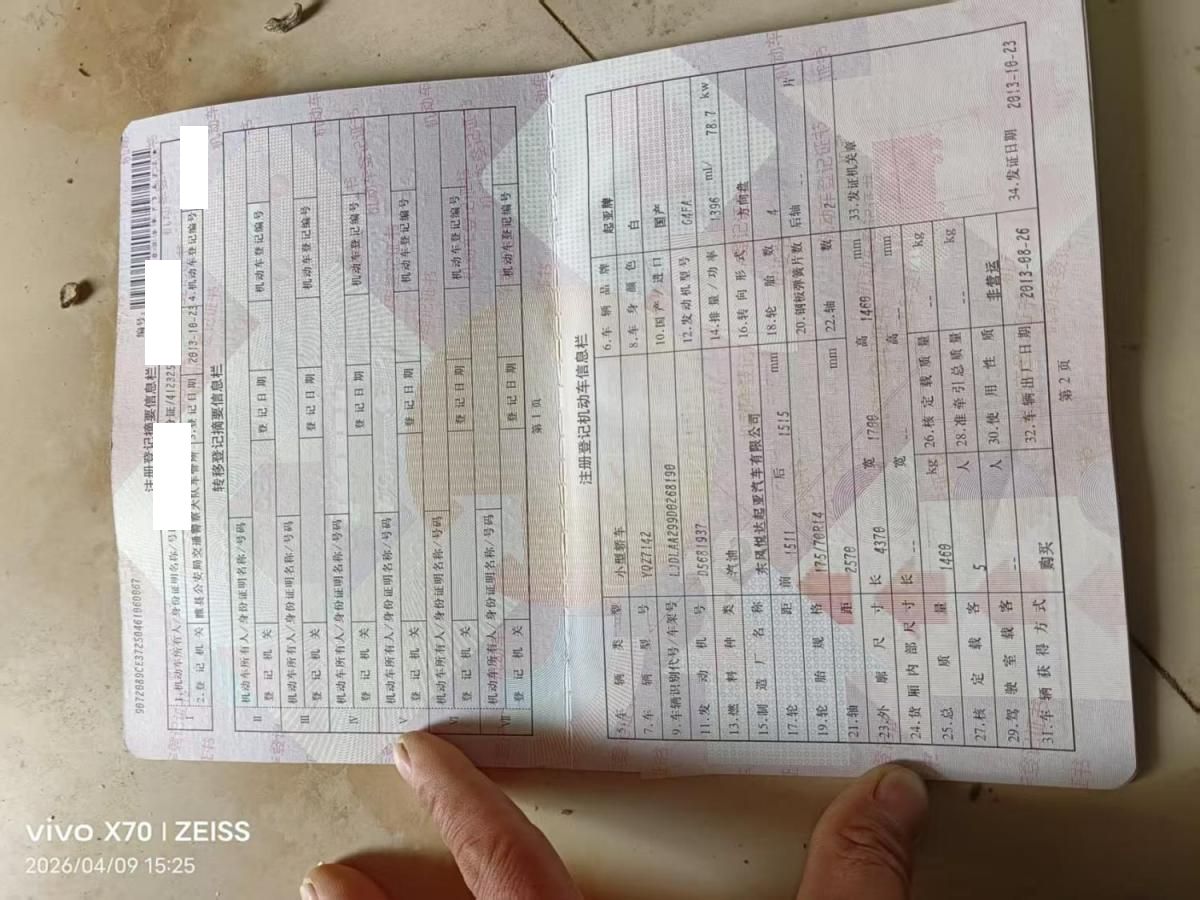 9072089CE3725046106006?
注册登记摘要信息栏
编号:
Ⅰ 1.机动车所有人/身份证明名称/号码 证/412325
2.登记机关 睢县公安局交通警察大队车管所 3.登记日期 2013-10-23 4.机动车登记编号
转移登记摘要信息栏
Ⅱ 机动车所有人/身份证明名称/号码
登记机关 登记日期 机动车登记编号
Ⅲ 机动车所有人/身份证明名称/号码
登记机关 登记日期 机动车登记编号
Ⅳ 机动车所有人/身份证明名称/号码
登记机关 登记日期 机动车登记编号
Ⅴ 机动车所有人/身份证明名称/号码
登记机关 登记日期 机动车登记编号
Ⅵ 机动车所有人/身份证明名称/号码
登记机关 登记日期 机动车登记编号
Ⅶ 机动车所有人/身份证明名称/号码
登记机关 登记日期 机动车登记编号
第 1 页
注册登记机动车信息栏
5.车辆类型 小型轿车 6.车辆品牌 起亚牌
7.车辆型号 YQZ7142 8.车身颜色 白
9.车辆识别代号/车架号 LJDLAA299D0268190 10.国产/进口 国产
11.发动机号 D5681937 12.发动机型号 G4FA
13.燃料种类 汽油 14.排量/功率 1396 ml/ 78.7 kw
15.制造厂名称 东风悦达起亚汽车有限公司 16.转向形式 方向盘
17.轮距 前 1511 后 1515 mm 18.轮胎数 4
19.轮胎规格 175/70R14 20.钢板弹簧片数 后轴 -- 片
21.轴距 2570 mm 22.轴数 2
23.外廓尺寸 长 4370 宽 1700 高 1460 mm 33.发证机关章
24.货厢内部尺寸 长 -- 宽 -- 高 -- mm
25.总质量 1460 kg 26.核定载质量 -- kg
27.核定载客 5 人 28.准牵引总质量 -- kg
29.驾驶室载客 -- 人 30.使用性质 非营运
31.车辆获得方式 购买 32.车辆出厂日期 2013-08-26 34.发证日期 2013-10-23
第 2 页
vivo X70 | ZEISS
2026/04/09 15:25